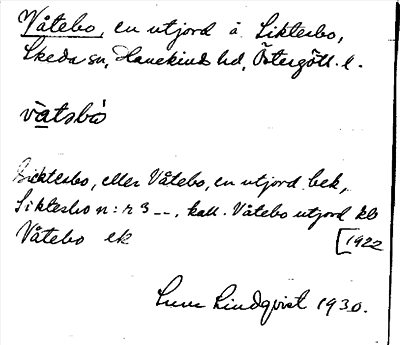 Våtebo, en utjord å Sikterbo,
Skeda sn, Hanekinds hd, Östergötl. l.
våtsbo
Sikterbo, eller Våtebo, en utjord bek,
Sikterbo n:r 3 --, kall. Våtebo utjord kb
Våtebo ek [1922
Sune Lindqvist 1930.